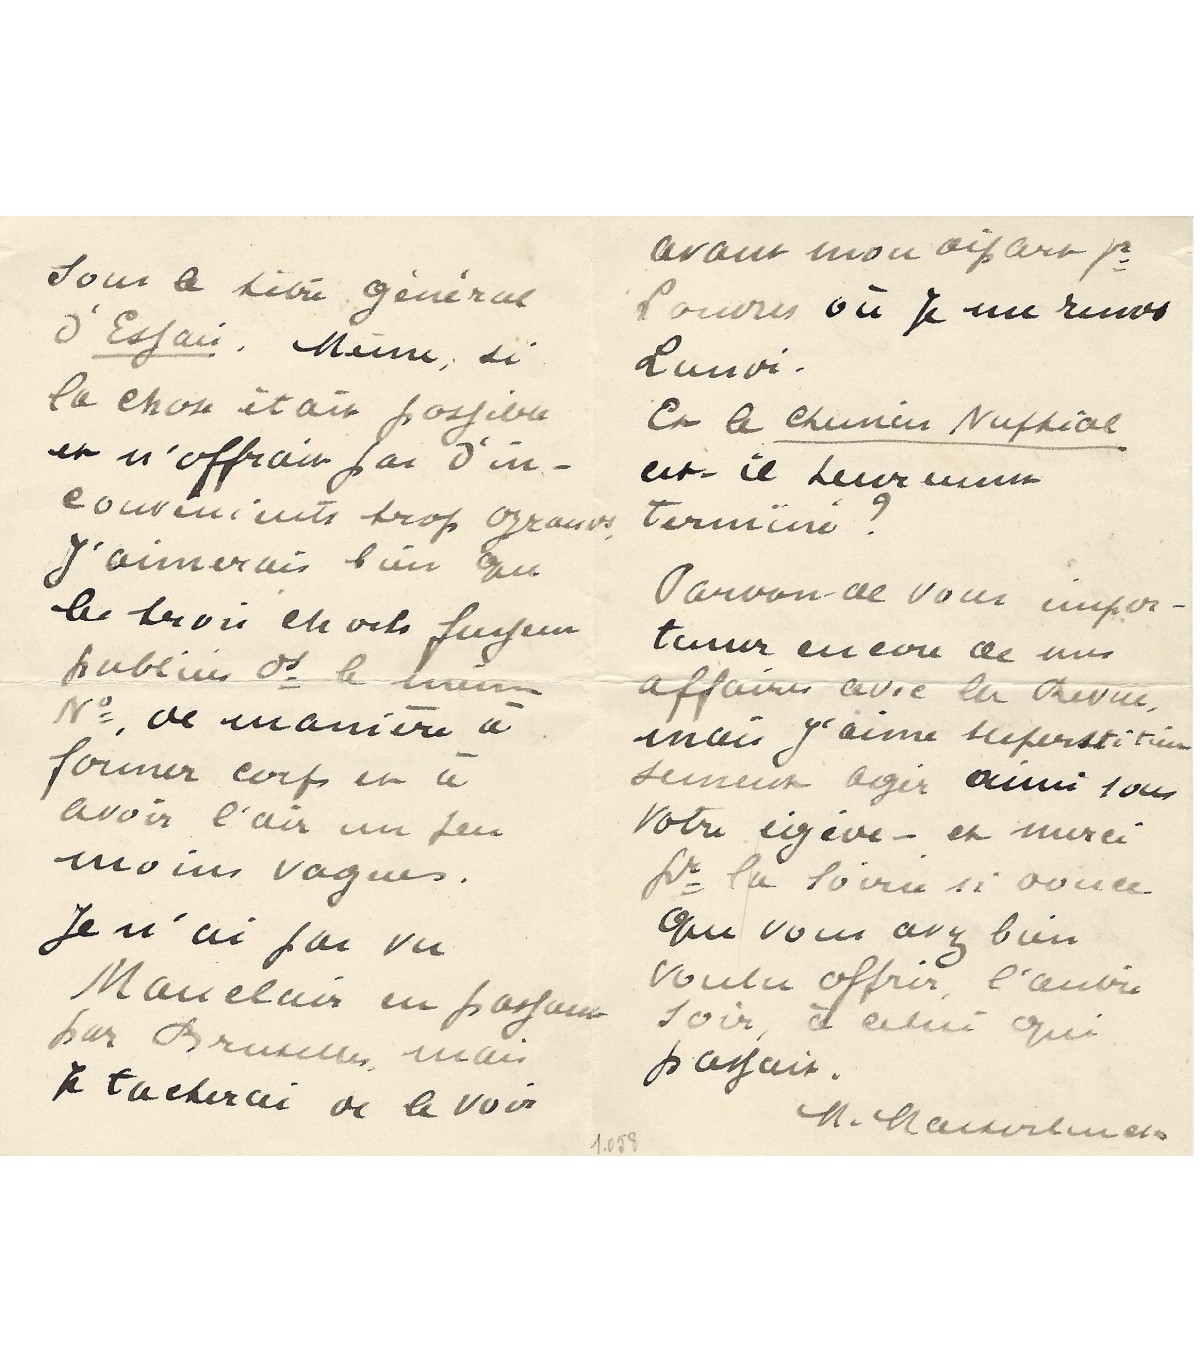 sous le titre général
d'Essais. Même, si
la chose était possible
et n'offrait pas d'in-
convénients trop grands,
j'aimerais bien que
les trois chocs fussent
publiés ds le même
No, de manière à
former corps et à
avoir l'air un peu
moins vagues.
Je n'ai pas vu
Mauclair en passant
par Bruxelles, mais
je tacherai de le voir
avant mon départ pr
Londres où je me rends
Lundi.
Et le Chemin Nuptial
est-il heureusement
terminé?
Pardon de vous impor-
tuner encore de mes
affaires avec la Revue,
mais j'aime superstitieu
sement agir ainsi sous
votre égide - et merci
pr la soirée si douce
que vous avez bien
voulu offrir, l'autre
soir, à celui qui
passait.
M. Maeterlinck
1.058